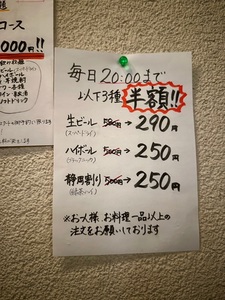 コース
,000円!!
毎日20:00まで
以下3種 半額!!
生ビール 580円→290円
(スーパードライ)
ハイボール 500円→250円
(ブラックニッカ)
静岡割り 500円→250円
(緑茶ハイ)
※お一人様、お料理一品以上の
注文をお願いしております